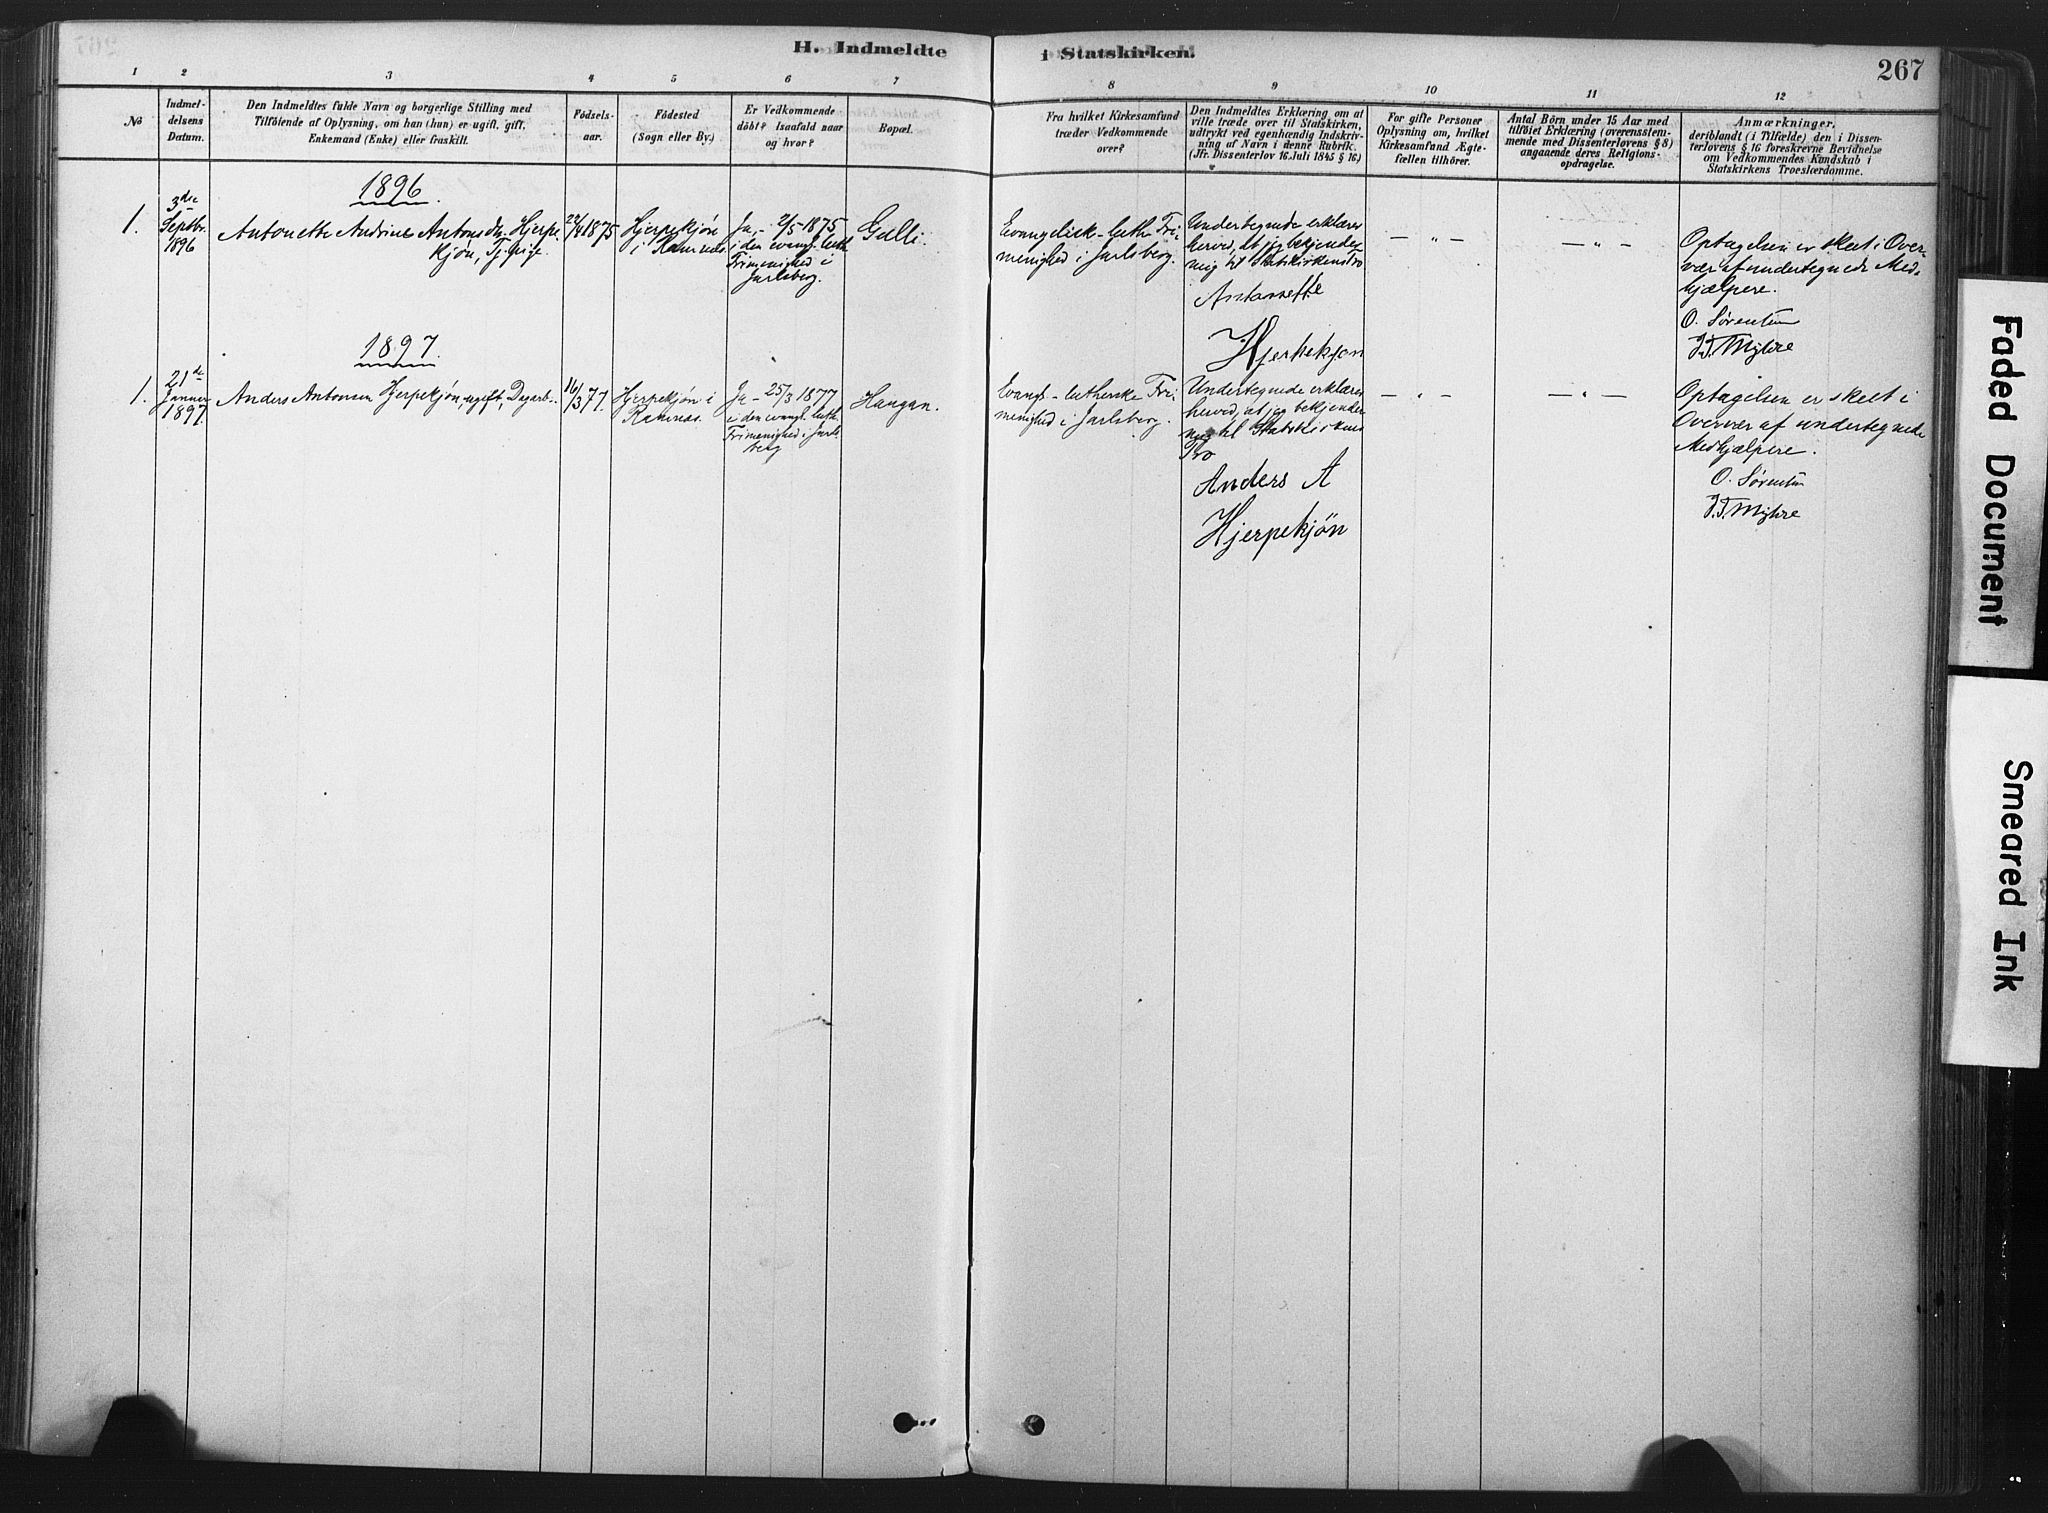 H. Indmeldte i Statskirken.
267
1 2 3 4 5 6 7 8 9 10 11 12
No
Indmel-
delsens
Datum.
Den Indmeldtes fulde Navn og borgerlige Stilling med
Tilföiende af Oplysning, om han (hun) er ugift, gift,
Enkemand (Enke) eller fraskilt.
Födsels-
aar.
Födested
(Sogn eller By.)
Er Vedkommende
döbt? Isaafald naar
og hvor?
Bopæl.
Fra hvilket Kirkesamfund
træder Vedkommende
over?
Den Indmeldtes Erklæring om at
ville træde over til Statskirken,
udtrykt ved egenhændig Indskriv-
ning af Navn i denne Rubrik.
(Jfr. Dissenterlov 16 Juli 1845 § 16)
For gifte Personer
Oplysning om, hvilket
Kirkesamfund Ægte-
fællen tilhörer.
Antal Börn under 15 Aar med
tilföiet Erklæring (overensstem-
mende med Dissenterlovens § 8)
angaaende deres Religions-
opdragelse.
Anmærkninger,
deriblandt (i Tilfælde) den i Dissen-
terlovens § 16 foreskrevne Bevidnelse
om Vedkommendes Kundskab i
Statskirkens Troeslærdomme.
1896.
1.
3die
Septbr.
1896
Antonette Andrine Antonsdtr. Hjerpe-
kjøn, Tj. pige.
22/4 1875
Hjerpekjøn
i Ramnæs.
Ja, - 2/5 1875
i den evang. luth.
Frimenighed i
Jarlsberg.
Galli.
Evangelisk-luth. Fri-
menighed i Jarlsberg.
Undertegnede erklærer
herved, at jeg bekjender
mig til Statskirkens Tro
Antonette
Hjerpekjøn
— „ —
— „ —
Optagelsen er skeet i Over-
vær af undertegnede Med-
hjælpere.
O. Sørentun
J.T. Myhre
1897.
1.
21de
Januar
1897.
Anders Antonsen Hjerpekjøn, ugift, Dagarb.
16/3 77.
Hjerpekjøn i
Ramnæs.
Ja - 25/3 1877
i den evangl. luth.
Frimenighed i Jarls-
berg
Haugan.
Evangl.-lutherske Fri-
menighed i Jarlsberg.
Undertegnede erklærer
herved, at jeg bekjender
mig til Statskirkens
Tro
Anders A
Hjerpekjøn
— „ —
— „ —
Optagelsen er skeet i
Overvær af undertegnede
Medhjælpere.
O. Sørentun
J.T. Myhre
Faded Document
Smeared Ink